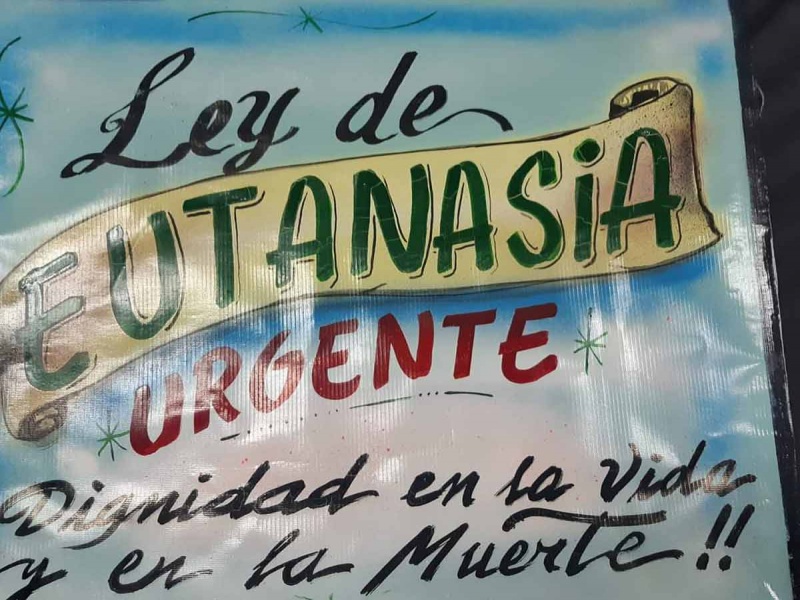 Ley de
EUTANASiA
URGENTE
Dignidad en la Vida
y en la Muerte!!